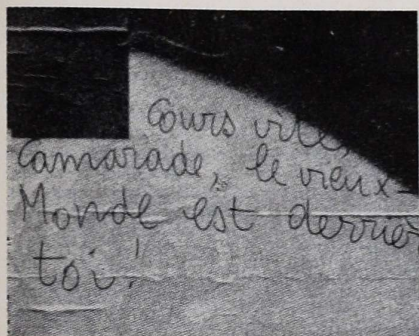 Cours vite,
Camarade, le vieux-
Monde est derrier
toi!